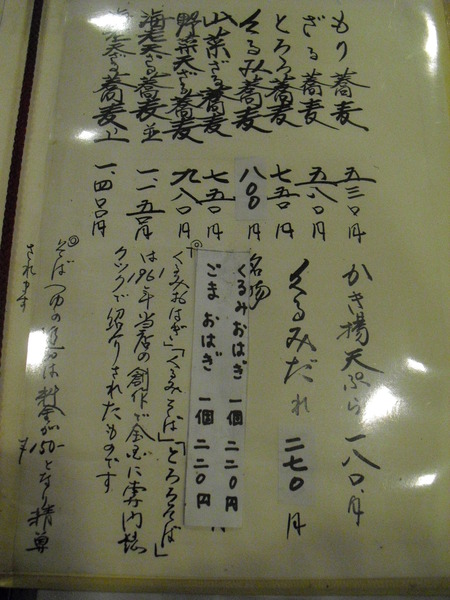 もり蕎麦 五三〇円
ざる蕎麦 五八〇円
とろろ蕎麦 七五〇円
くるみ蕎麦 八〇〇
山菜ざる蕎麦 七五〇円
野菜天ざる蕎麦 九八〇円
海老天ざる蕎麦 並 一、一五〇円
海老天ざる蕎麦 上 一、四〇〇円
かき揚天ぷら 一八〇円
くるみだれ 二七〇円
名物
くるみおはぎ 一個 二二〇円
ごまおはぎ 一個 二二〇円
◎「くるみおはぎ」「くるみそば」「とろろそば」
は 年当店の創作で全
で紹介されたものです
◎そばつゆの は料金が150-となり
されます